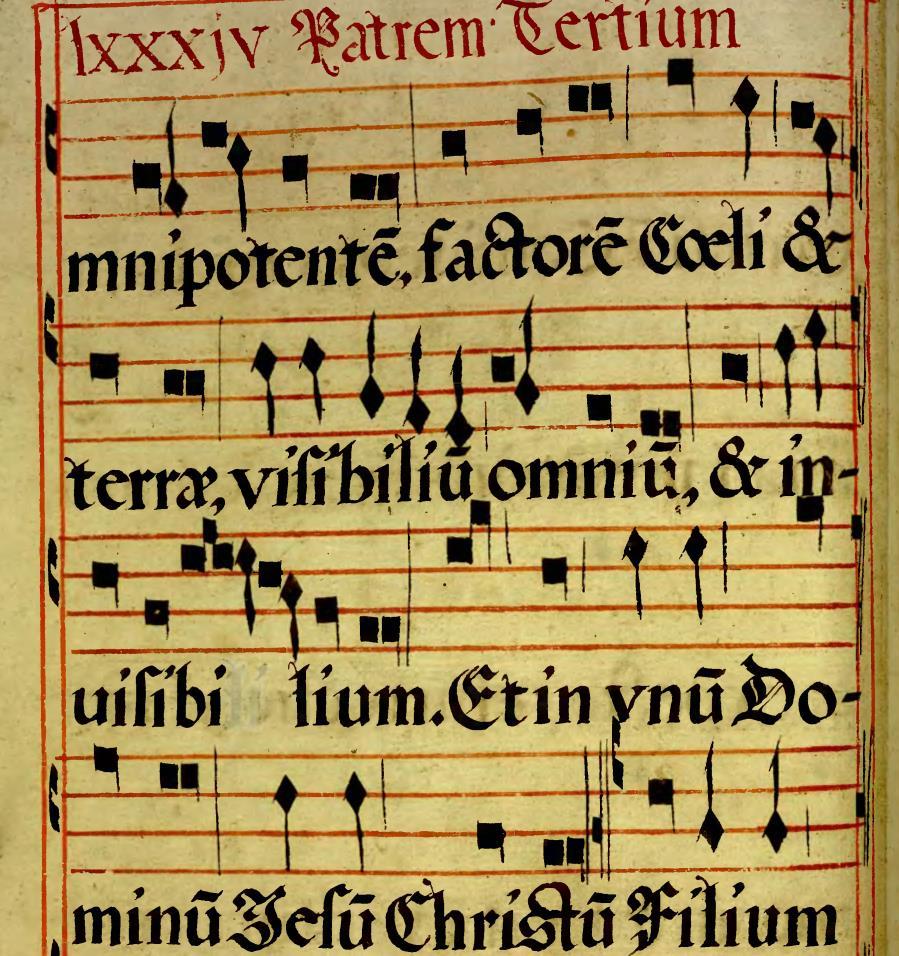 lxxxjv Patrem Tertium
mnipotentē, factorē Cœli &
terræ, viſibiliū omniū, & in-
uiſibi lium. Et in vnū Do-
minū Jeſū Chriſtū Filium